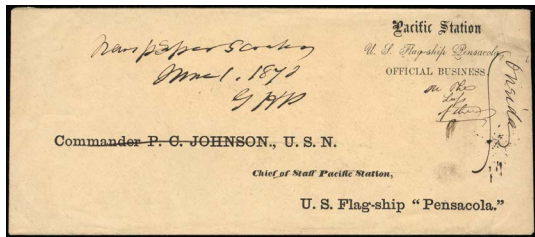 Pacific Station
U. S. Flag-ship Pensacola
OFFICIAL BUSINESS.
Newspaper
June 1. 1870
on the
Loss
of the
Oneida
Commander P. C. JOHNSON., U. S. N.
Chief of Staff Pacific Station,
U. S. Flag-ship “Pensacola.”